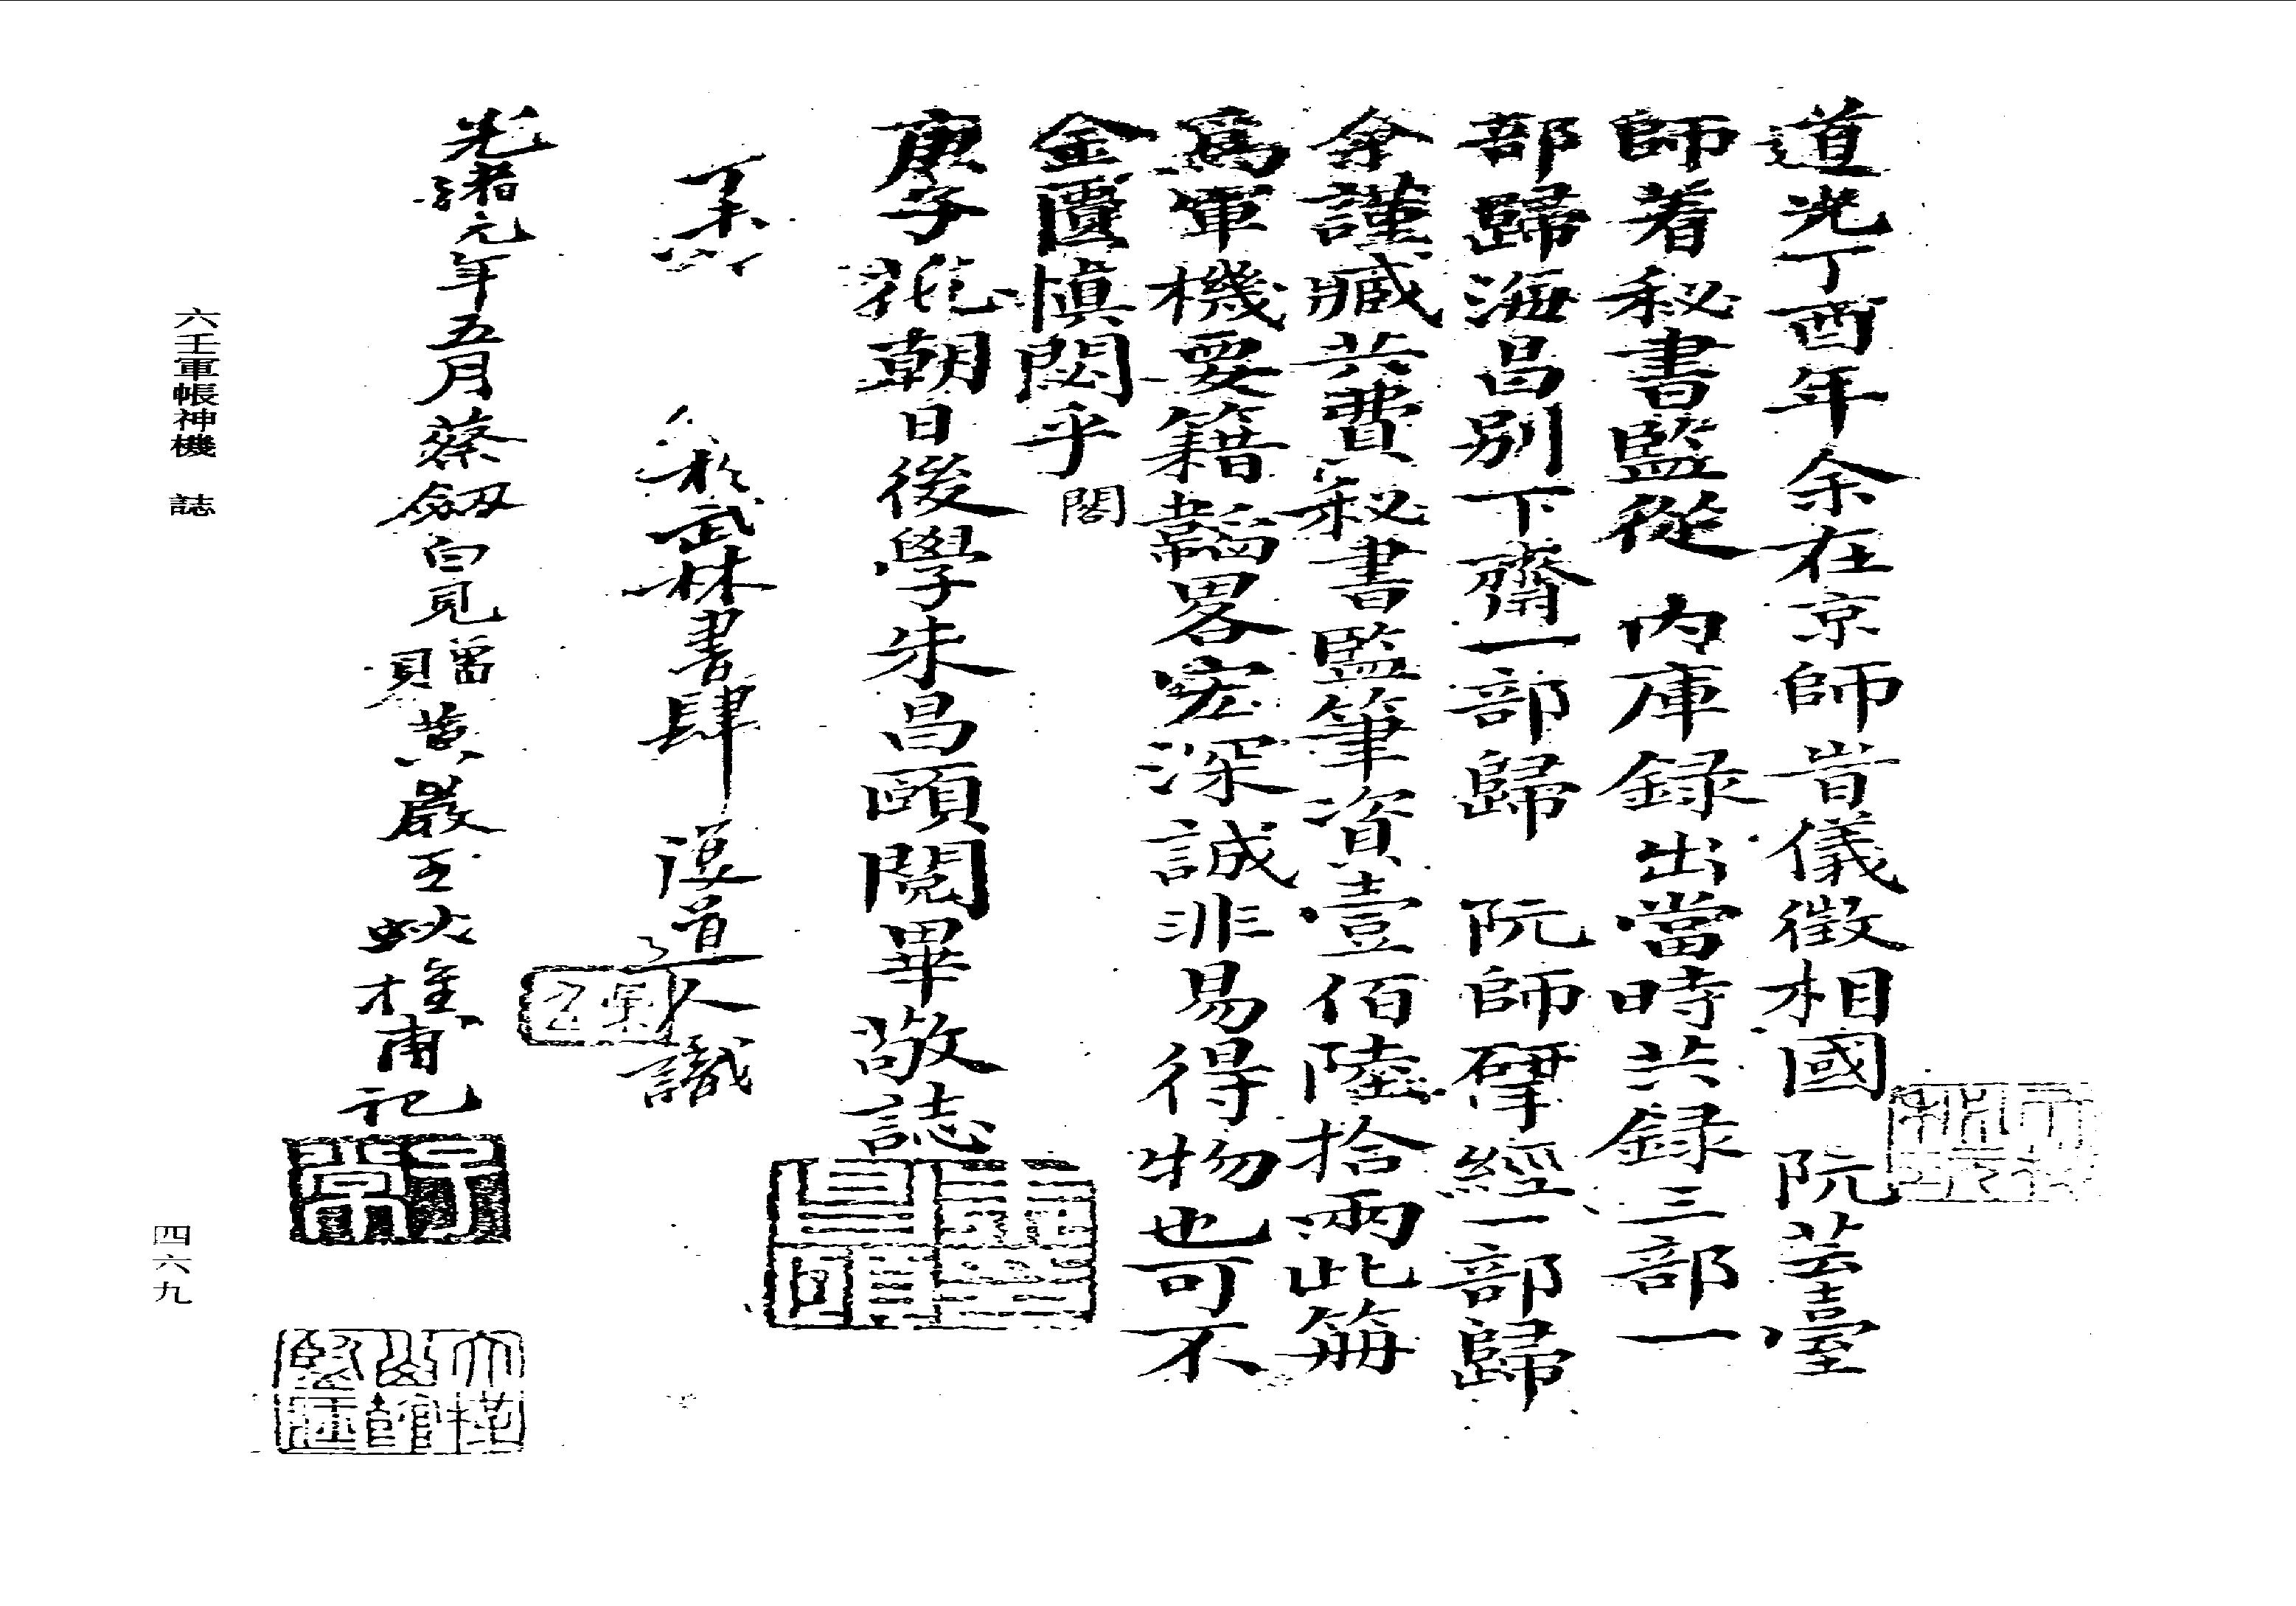 道光丁酉年余在京師昔儀徵相國　阮芸臺
師着秘書監從　內庫録出當時共録三部一
部歸海昌別下齋一部歸　阮師揅經一部歸
余謹臧共費秘書監筆資壹佰陸拾兩此册
爲軍機要籍韜畧宏深誠非易得物也可不
金匱慎閟乎
閣
庚子花朝日後學朱昌頤閱畢敬誌
於武林書肆　道人識
光緒元年五月蔡劒白見贈黃巖王 甫記
六壬軍帳神機　誌
四六九